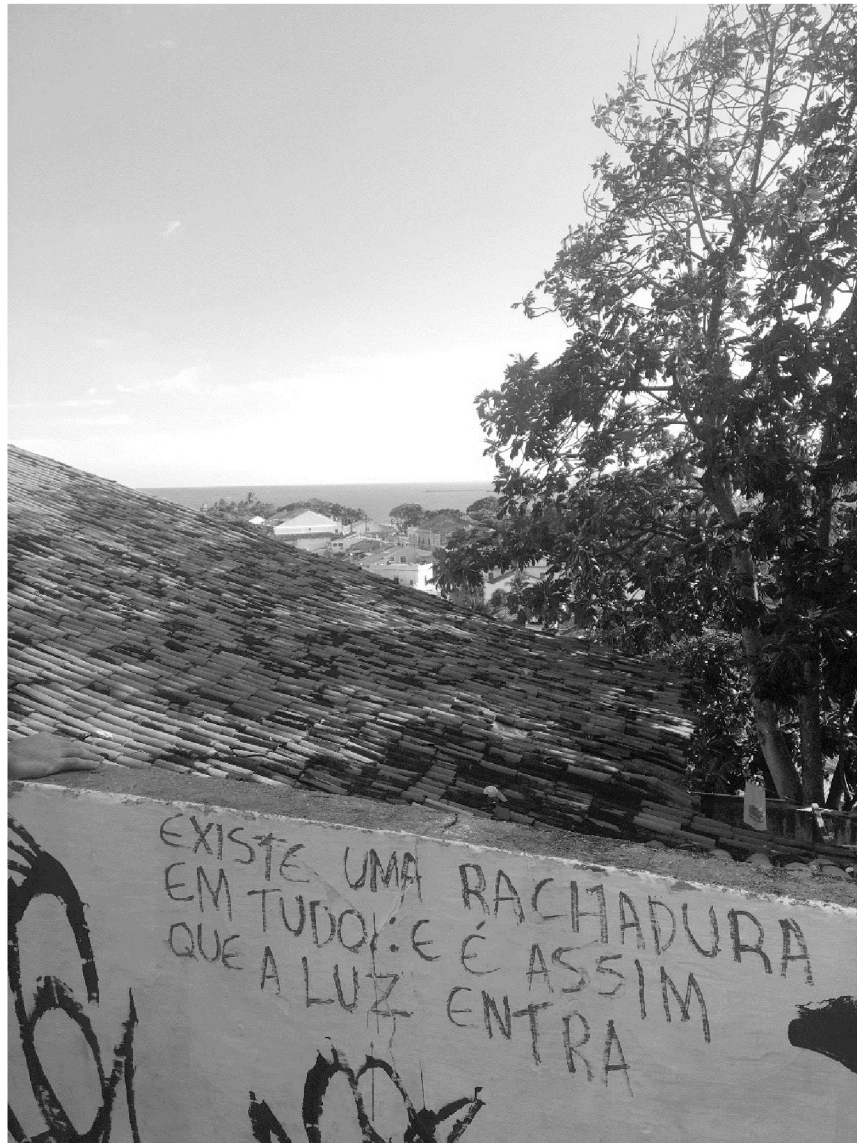 EXISTE UMA RACHADURA
EM TUDO: E É ASSIM
QUE A LUZ ENTRA